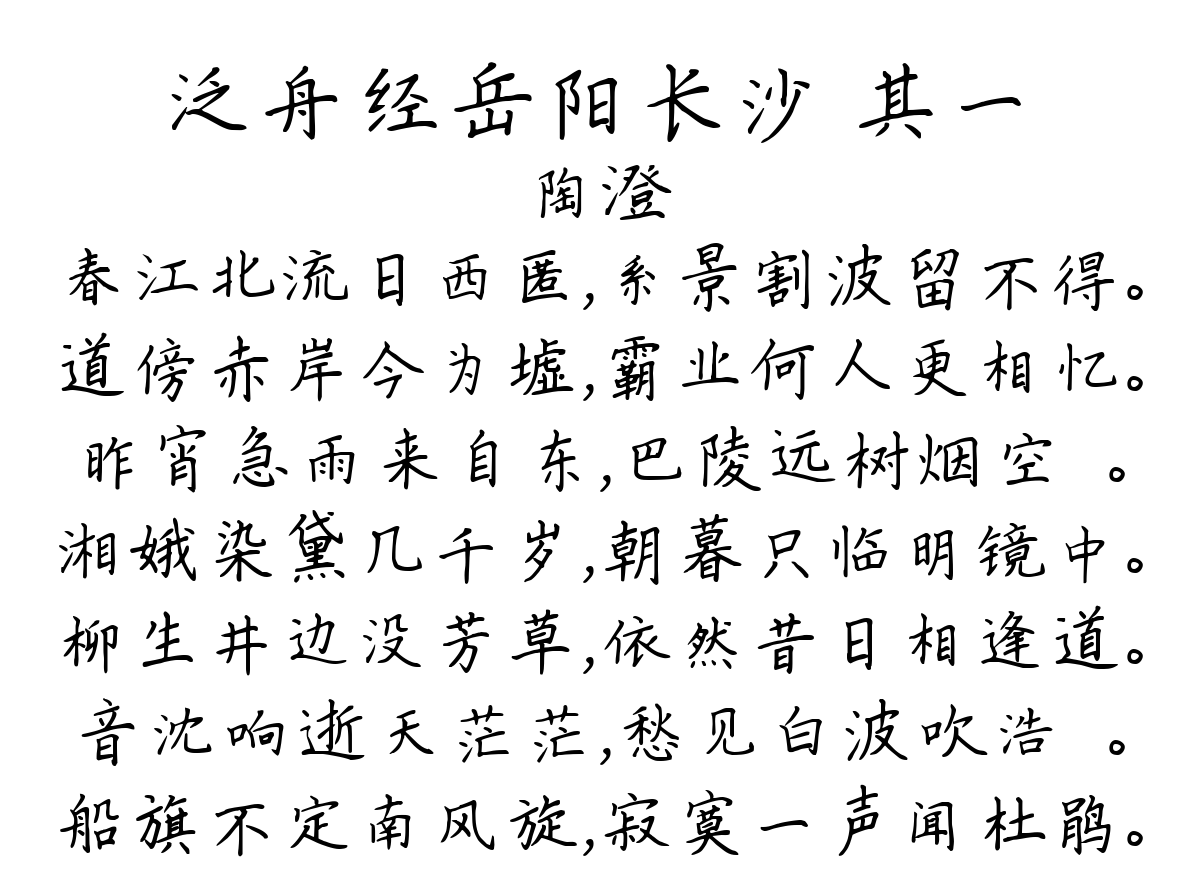 泛舟经岳阳长沙 其一
陶澄
春江北流日西匿,系景割波留不得。
道傍赤岸今为墟,霸业何人更相忆。
昨宵急雨来自东,巴陵远树烟空 。
湘娥染黛几千岁,朝暮只临明镜中。
柳生井边没芳草,依然昔日相逢道。
音沈响逝天茫茫,愁见白波吹浩 。
船旗不定南风旋,寂寞一声闻杜鹃。